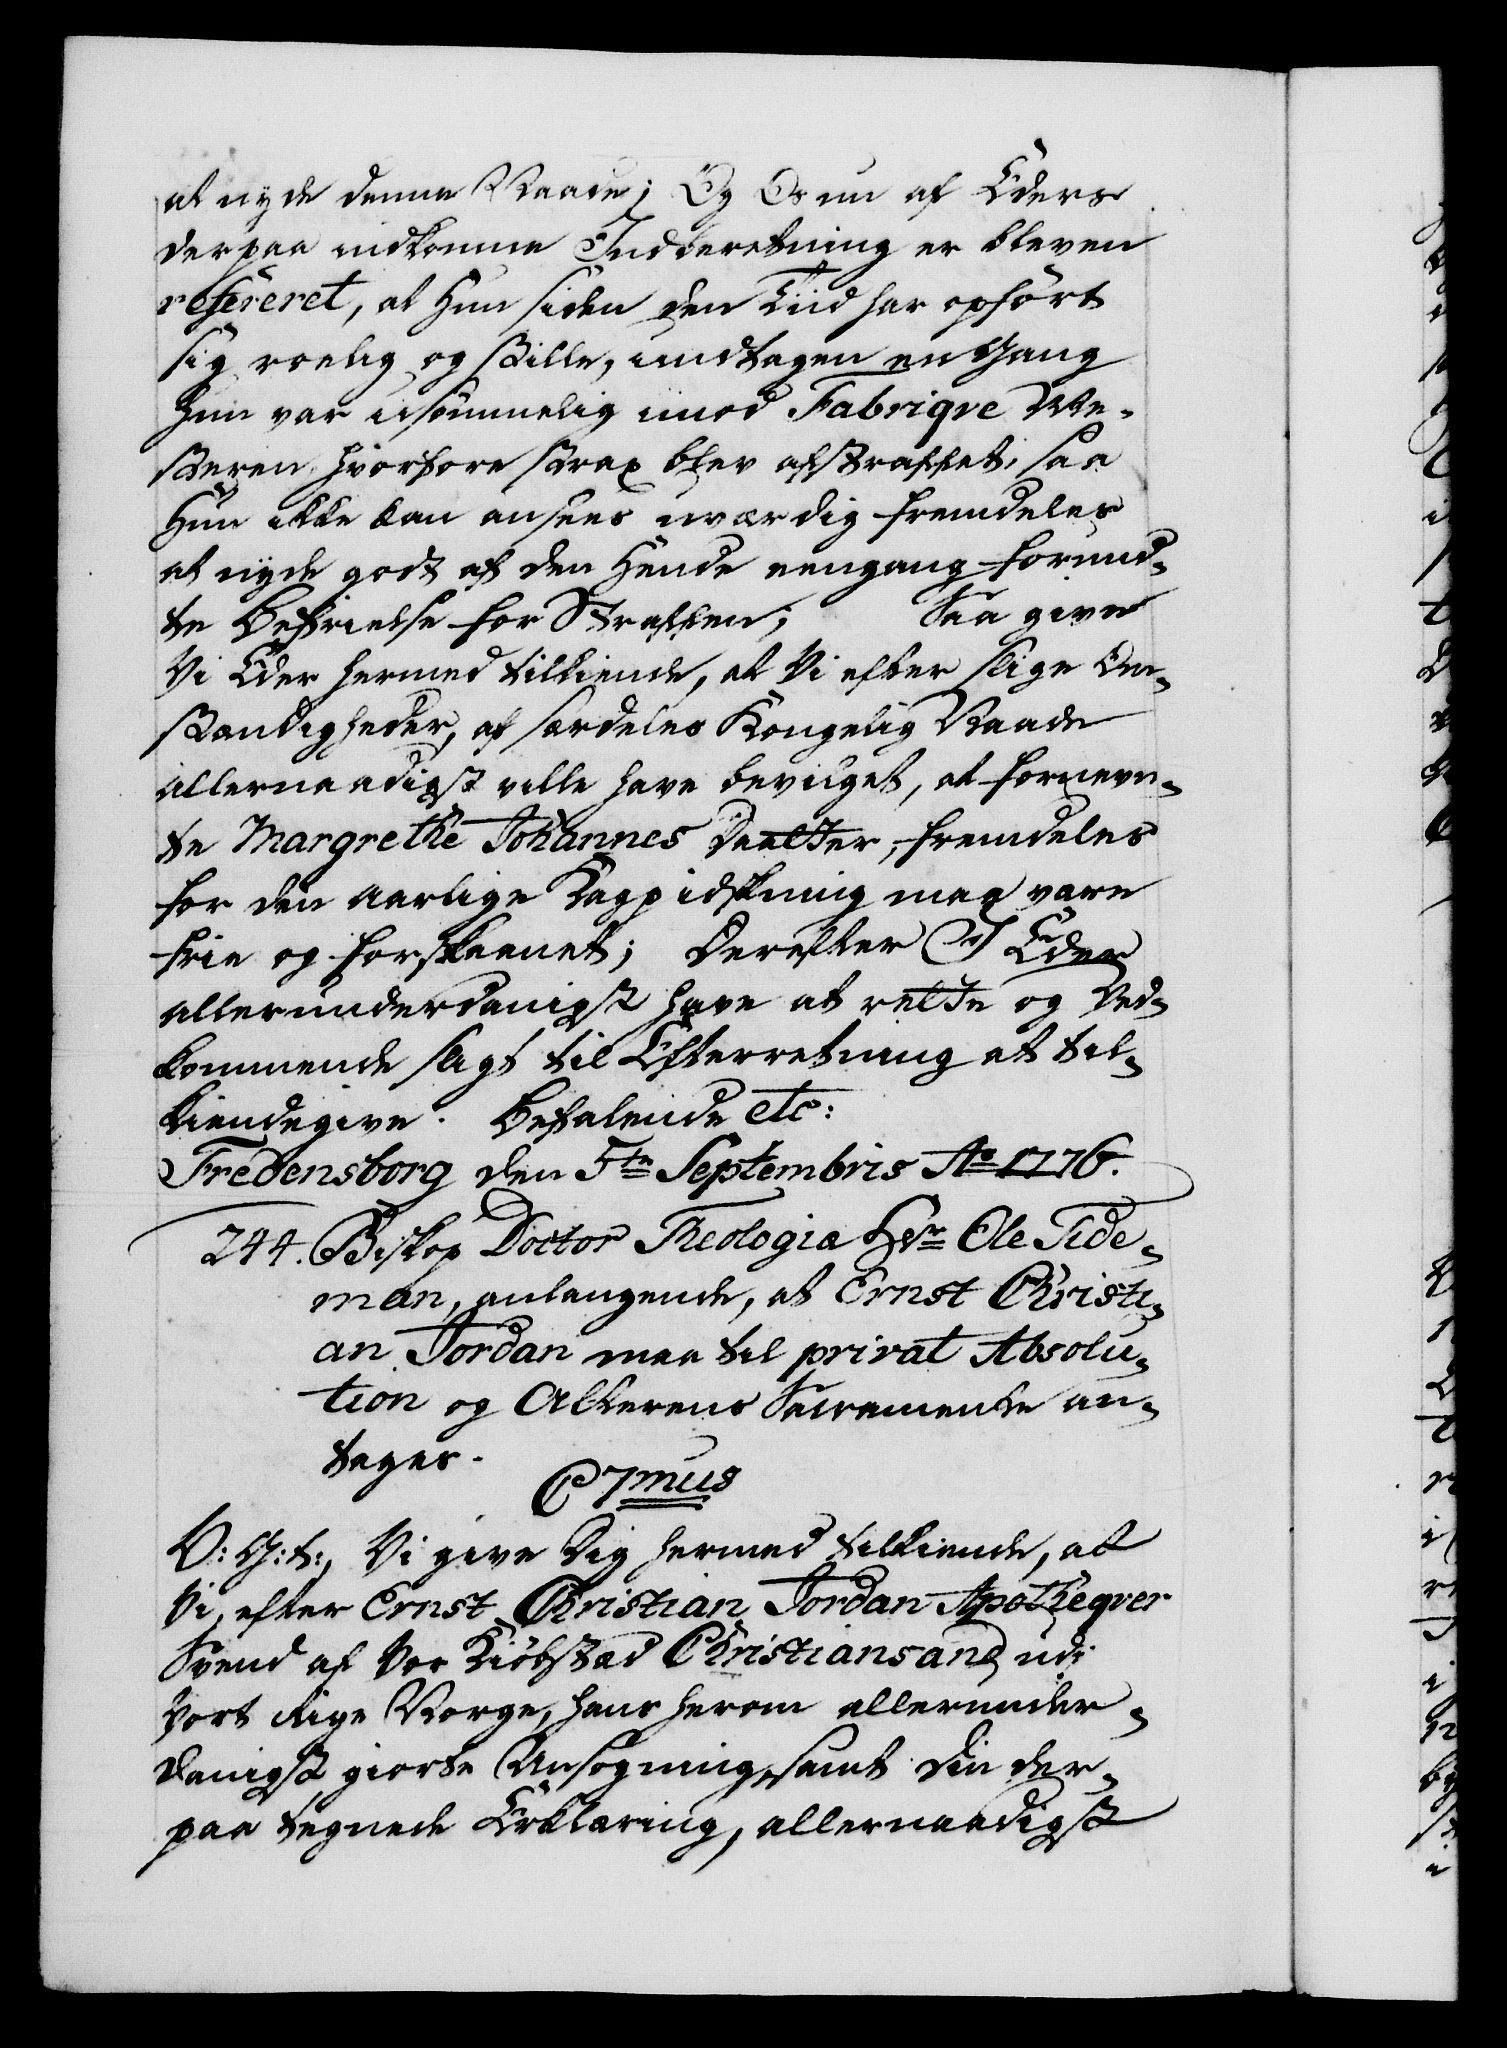 at nyde denne Naade; Og Os nu af Eders
derpaa indkomne Indberetning er bleven
refereret, at Hun siden den Tiid har opført
sig roelig og stille, undtagen en Gang
hun var usømmelig imod Fabriqve Me-
steren, hvorfore strax blev afstraffet, saa
Hun ikke kan ansees uværdig fremdeles
at nyde godt af den Hende eengang forund-
te Befrielse for Straffen; Saa give
Vi Eder hermed tilkiende, at Vi efter slige Om-
stændigheder, af særdeles Kongelig Naade
allernaadigst ville have bevilget, at fornevn-
te Margrethe Johannes Daatter, fremdeles
for den aarlige Kagpidskning maa være
frie og forskaanet; Derefter I Eder
allerunderdanigst have at rette og Ved-
kommende sligt til Efterretning at til-
kiendegive. Befalende etc:
Fredensborg den 5te Septembris Ao 1776.
244. Biskop Doctor Theologiæ Hr Ole Tide-
man, anlangende, at Ernst Christi-
an Jordan maa til privat Absolu-
tion og Alterens Sacramente an-
tages.
C 7mus
V: G: t:, Vi give Dig hermed tilkiende, at
Vi, efter Ernst Christian Jordan Apotheqver
Svend af Vor Kiøbstæd Christiansand udi
Vort Rige Norge, hans herom allerunder-
danigst giorte Ansøgning, samt Din der-
paa tegnede Erklæring, allernaadigst